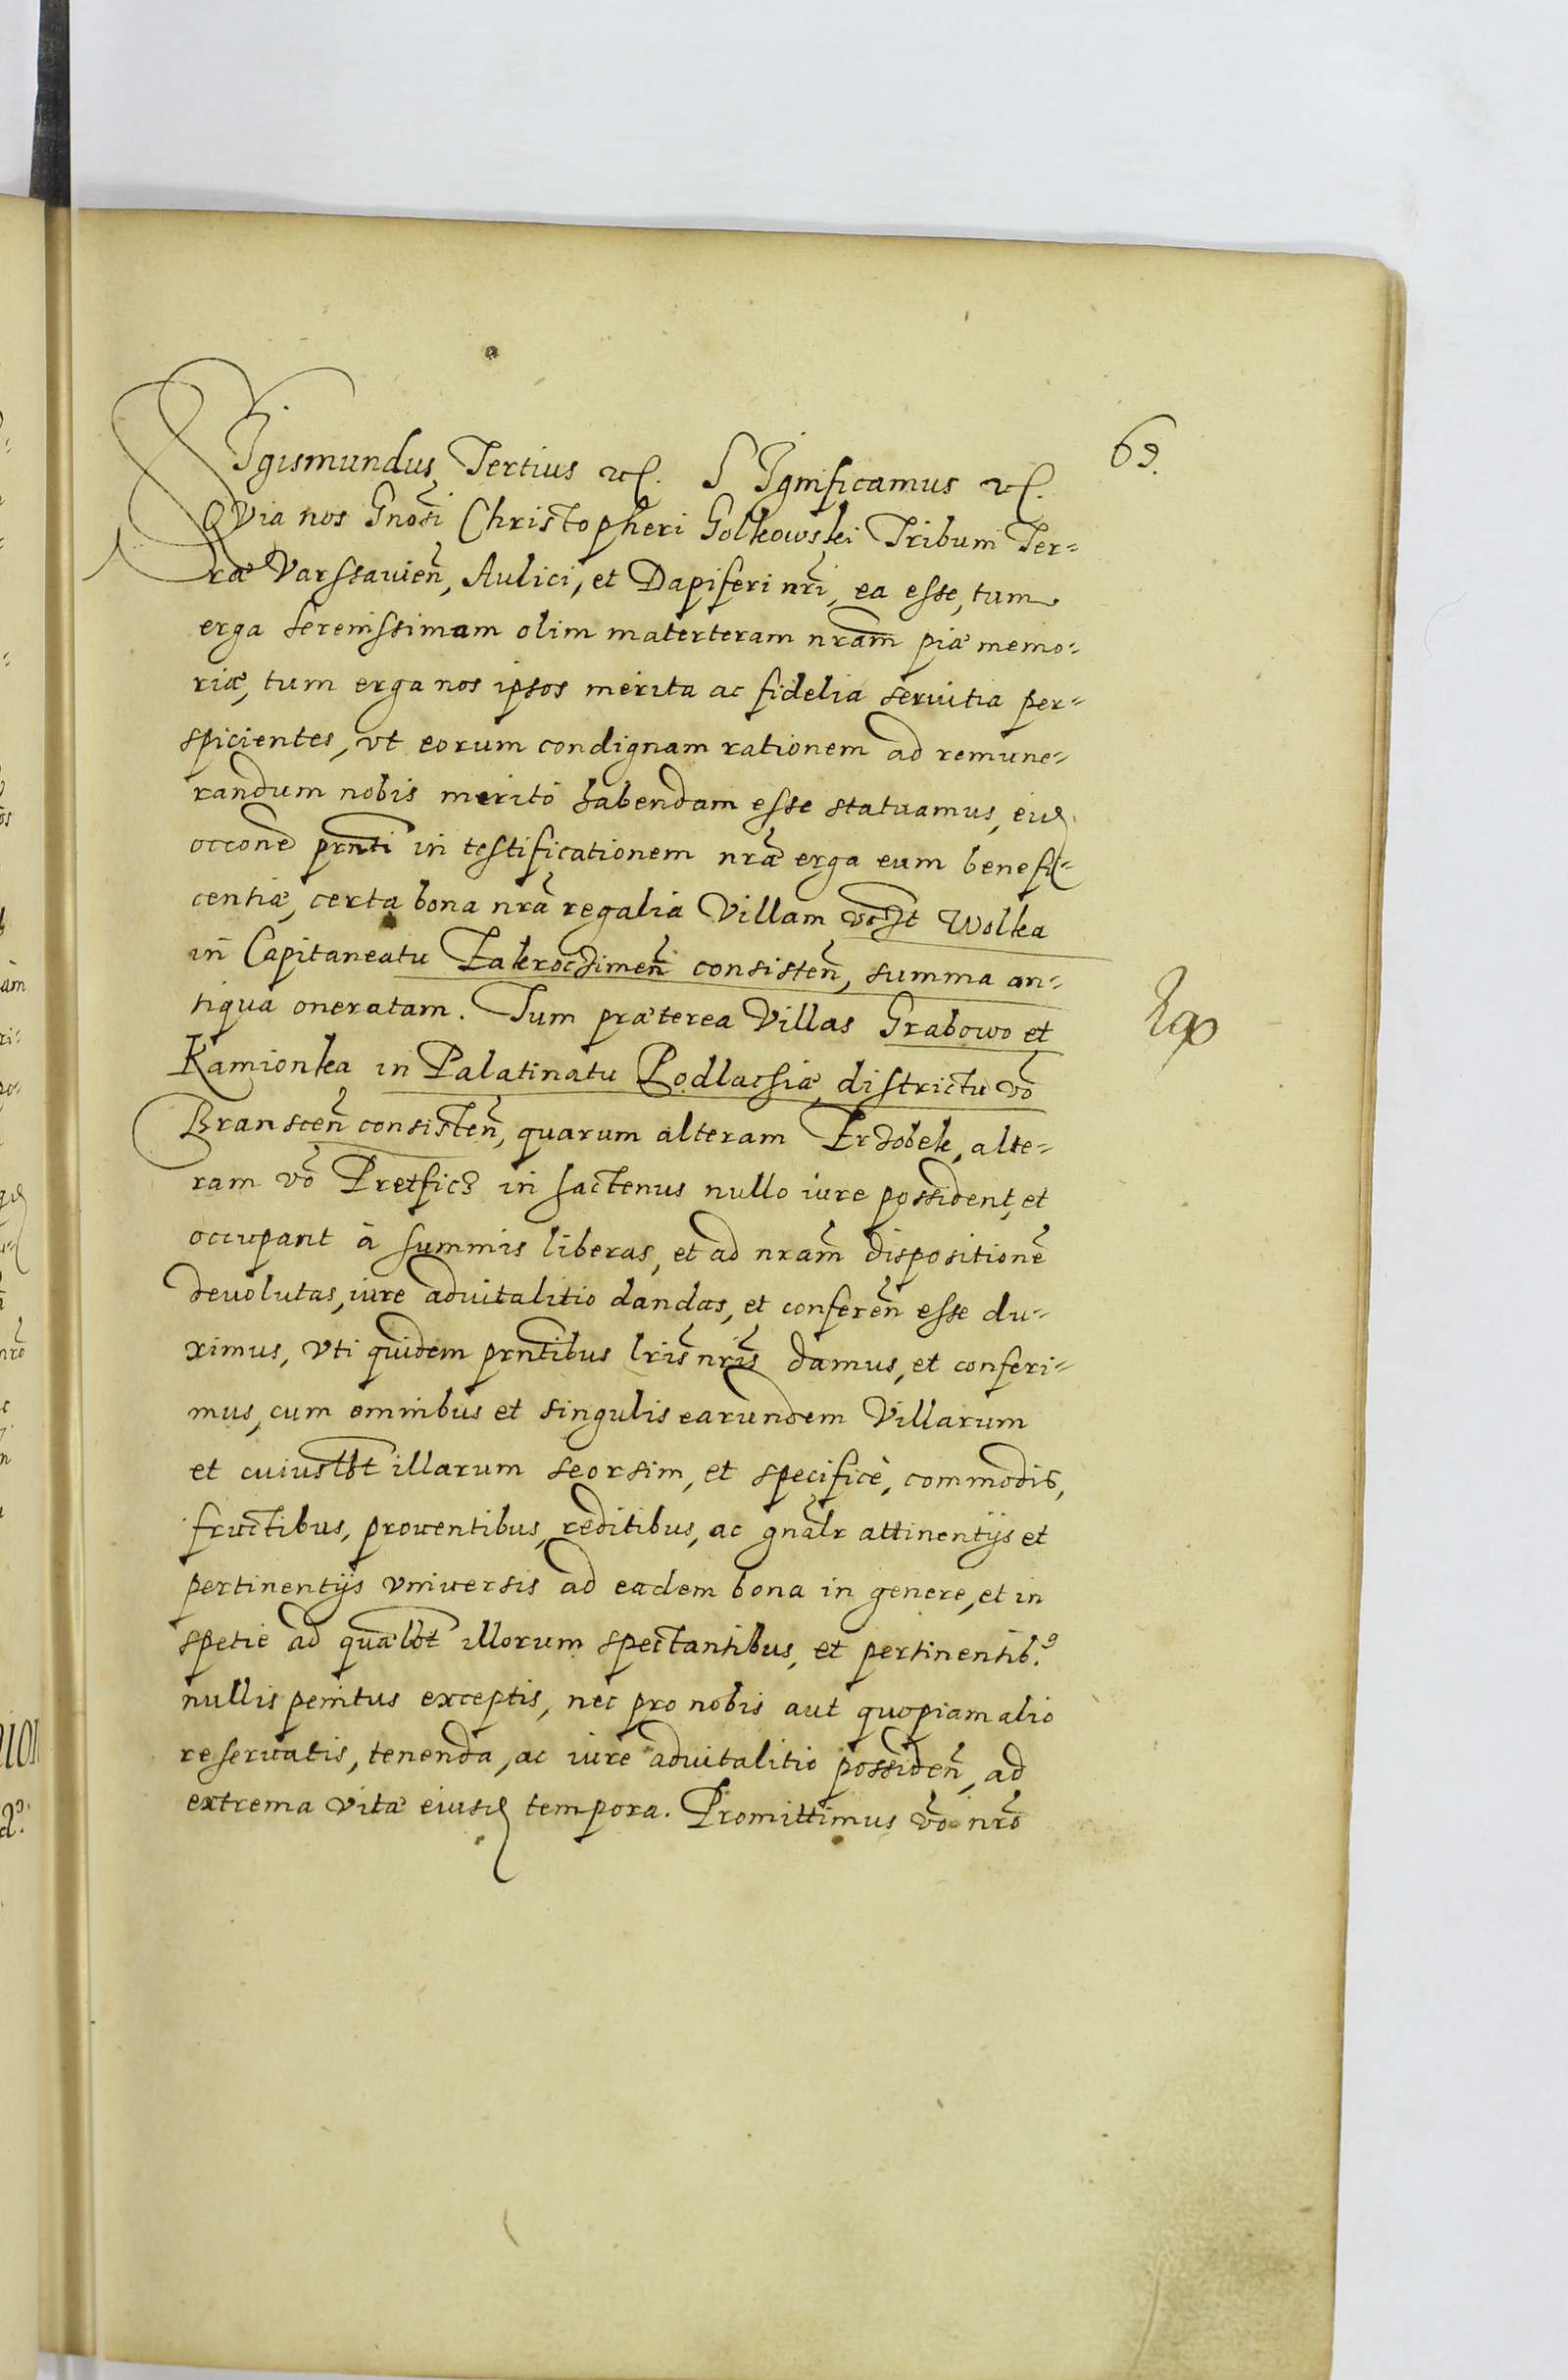 69.
Sigismundus Tertius etc. SIgnificamus etc.
QVia nos Gnosi Christopheri Golkowski Tribuni Ter=
ræ Varssauien̄, Aulici, et Dapiferi nri, ea esse, tum
erga serenissimam olim materteram nram piæ memo=
riæ, tum erga nos ipsos merita ac fidelia seruitia per=
spicientes, vt eorum condignam rationem ad remune=
randum nobis meritó habendam esse statuamus, eius
occone prnti in testificationem nræ erga eum benefi=
centiæ, certa bona nra regalia Villam Wolka
in Capitaneatu Zakroczimen̄ consisten̄, summa an=
tiqua oneratam. Tum præterea Villas Grabowo et
Kamionka in Palatinatu Podlachiæ, districtu vō
Branscen̄ consisten̄, quarum alteram alte=
ram vō in hactenus nullo iure possident, et
occupant à summis liberas, et ad nram dispositionē
deuolutas, iure aduitalitio dandas, et conferen̄ esse du=
ximus, vti quidem prntibus lris nris damus, et conferi=
mus, cum omnibus et singulis earundem Villarum
et cuiuslbt illarum seorsim, et specificè, commodis,
fructibus, prouentibus, reditibus, ac gnalr attinentijs et
pertinentijs vniuersis ad eadem bona in genere, et in
spetie ad quælbt illorum spectantibus, et pertinentib.9
nullis penitus exceptis, nec pro nobis aut quopiam alio
reseruatis, tenenda, ac iure aduitalitio possiden̄, ad
extrema vitæ eiusd tempora. Promittimus vō nro